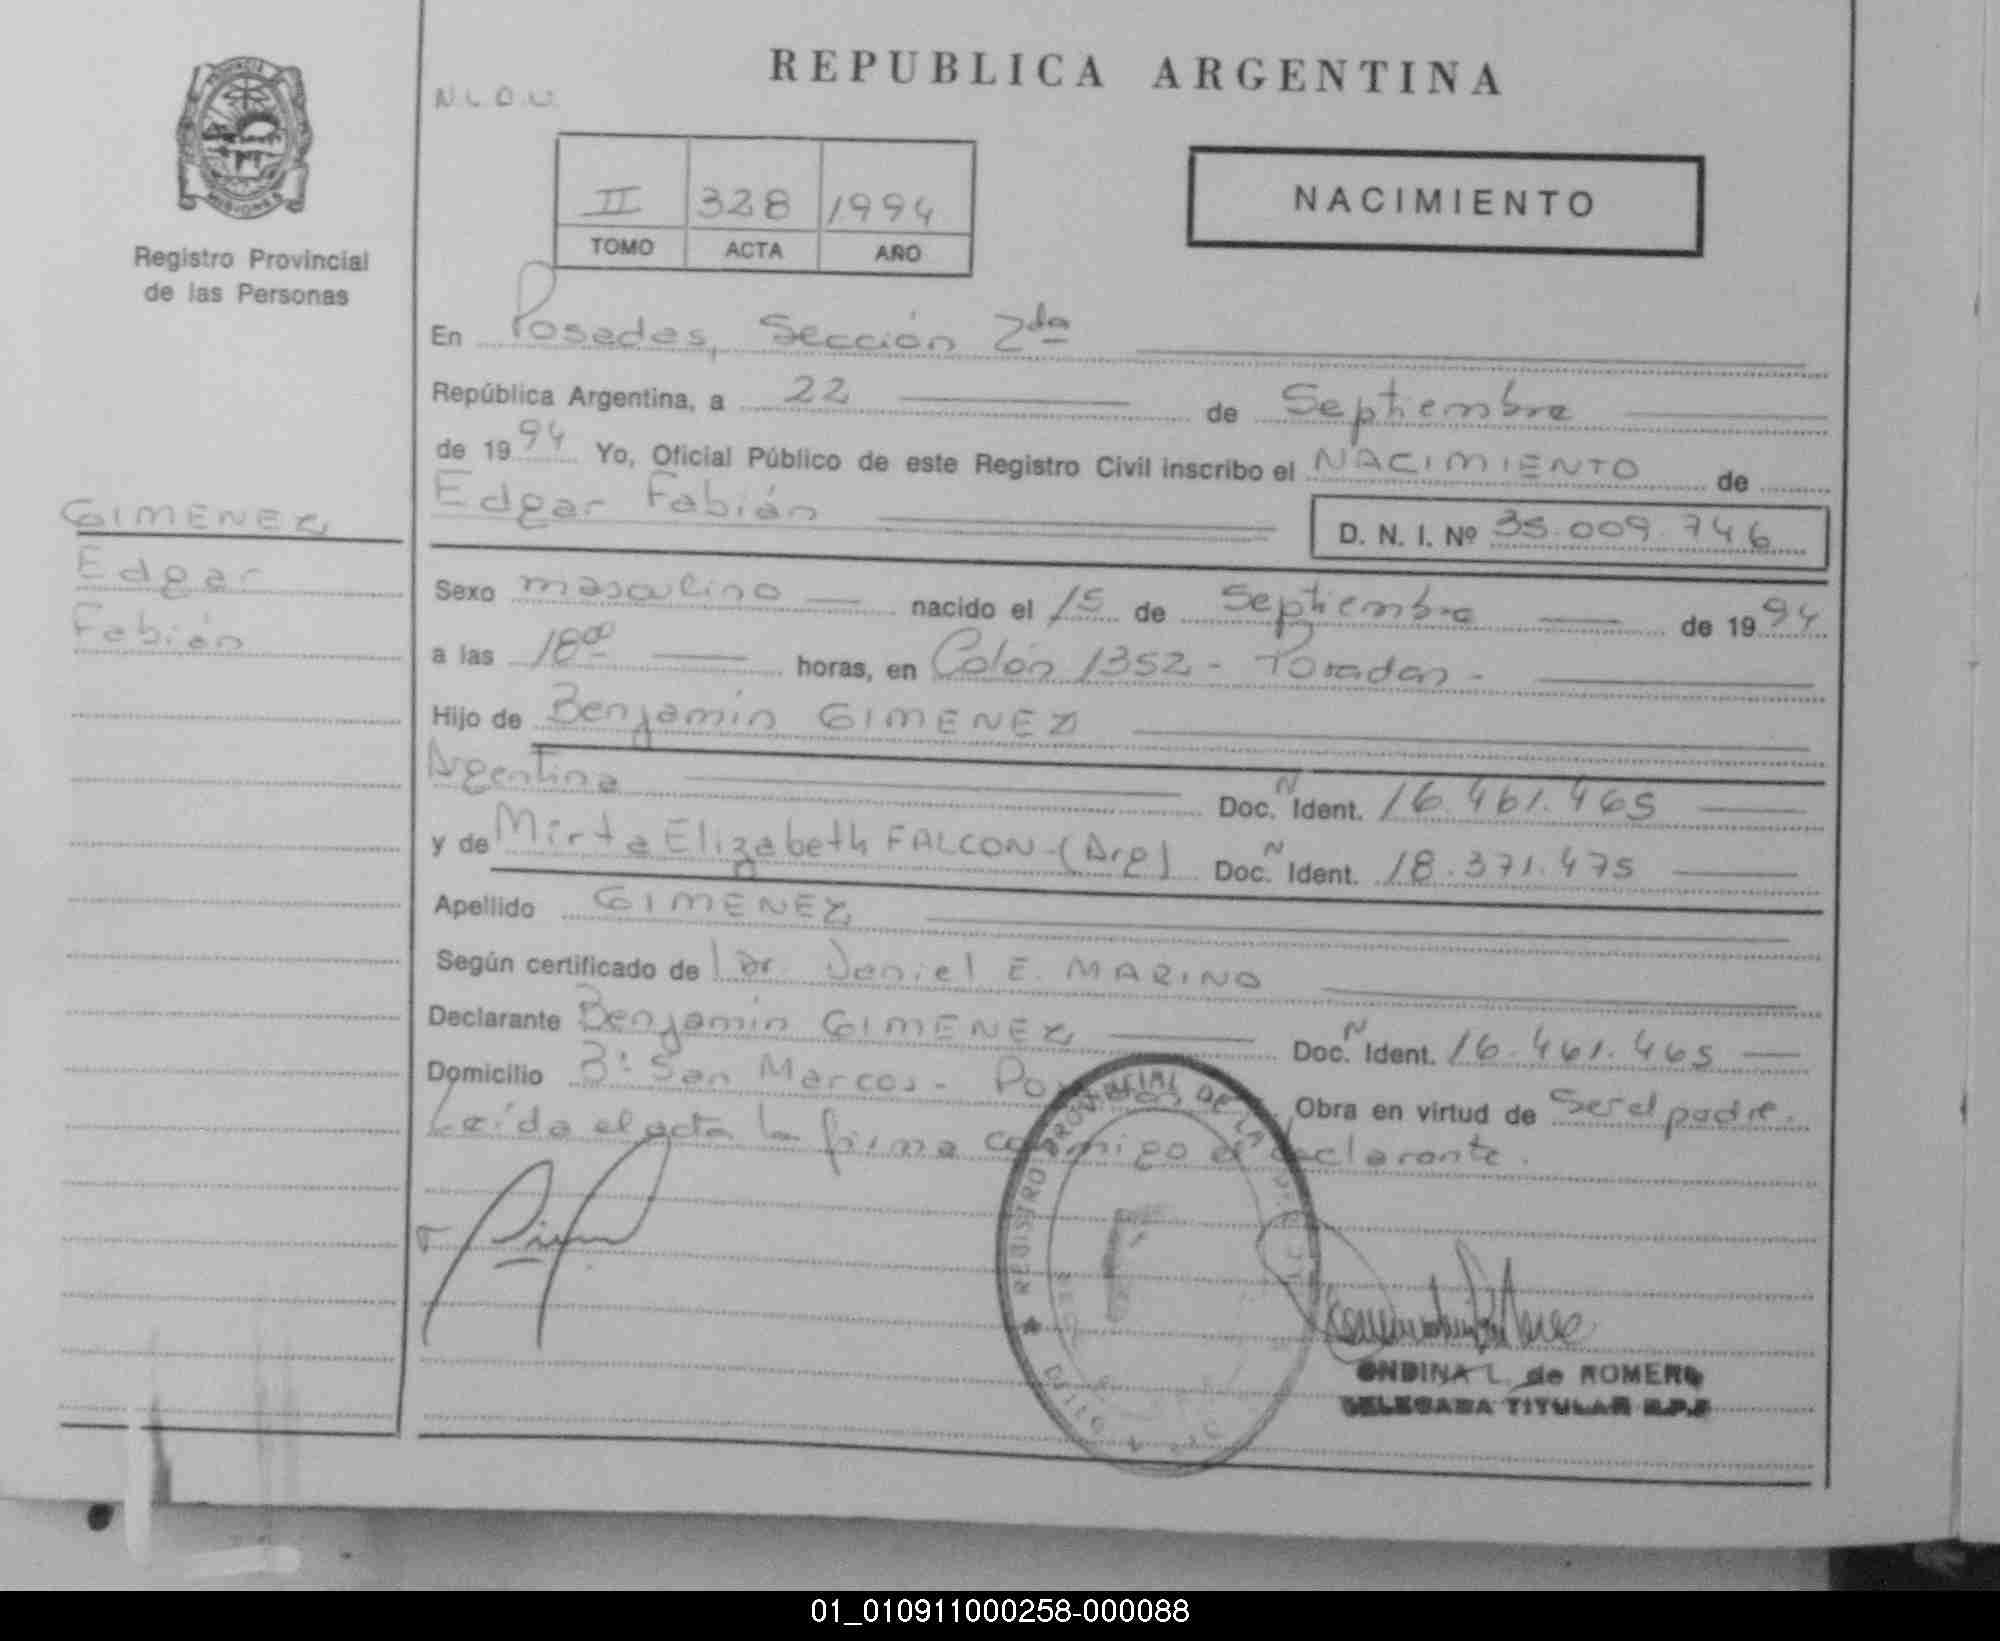 REPUBLICA ARGENTINA
N.L.O.U.
II 328 1994
TOMO ACTA AÑO
NACIMIENTO
PROVINCIA
MISIONES
Registro Provincial
de las Personas
GIMENEZ
Edgar
Fabián
En Posadas, Sección 2da
República Argentina, a 22 de Septiembre
de 1994 Yo, Oficial Público de este Registro Civil inscribo el NACIMIENTO de
Edgar Fabián
D. N. I. Nº 35.009.746
Sexo masculino nacido el 15 de Septiembre de 1994
a las 1800 horas, en Colón 1352 - Posadas -
Hijo de Benjamin GIMENEZ
Argentina Doc. N Ident. 16.461.465
y de Mirta Elizabeth FALCON - (Arg) Doc. N Ident. 18.371.475
Apellido GIMENEZ
Según certificado de Dr. Daniel E. MARINO
Declarante Benjamin GIMENEZ Doc. N Ident. 16.461.465
Domicilio Bº San Marcos - Posadas Obra en virtud de Ser el padre.
Leída el acta la firma conmigo el declarante.
REGISTRO PROVINCIAL DE LA
ONDINA L. de ROMERO
DELEGADA TITULAR R.P.P
01_010911000258-000088